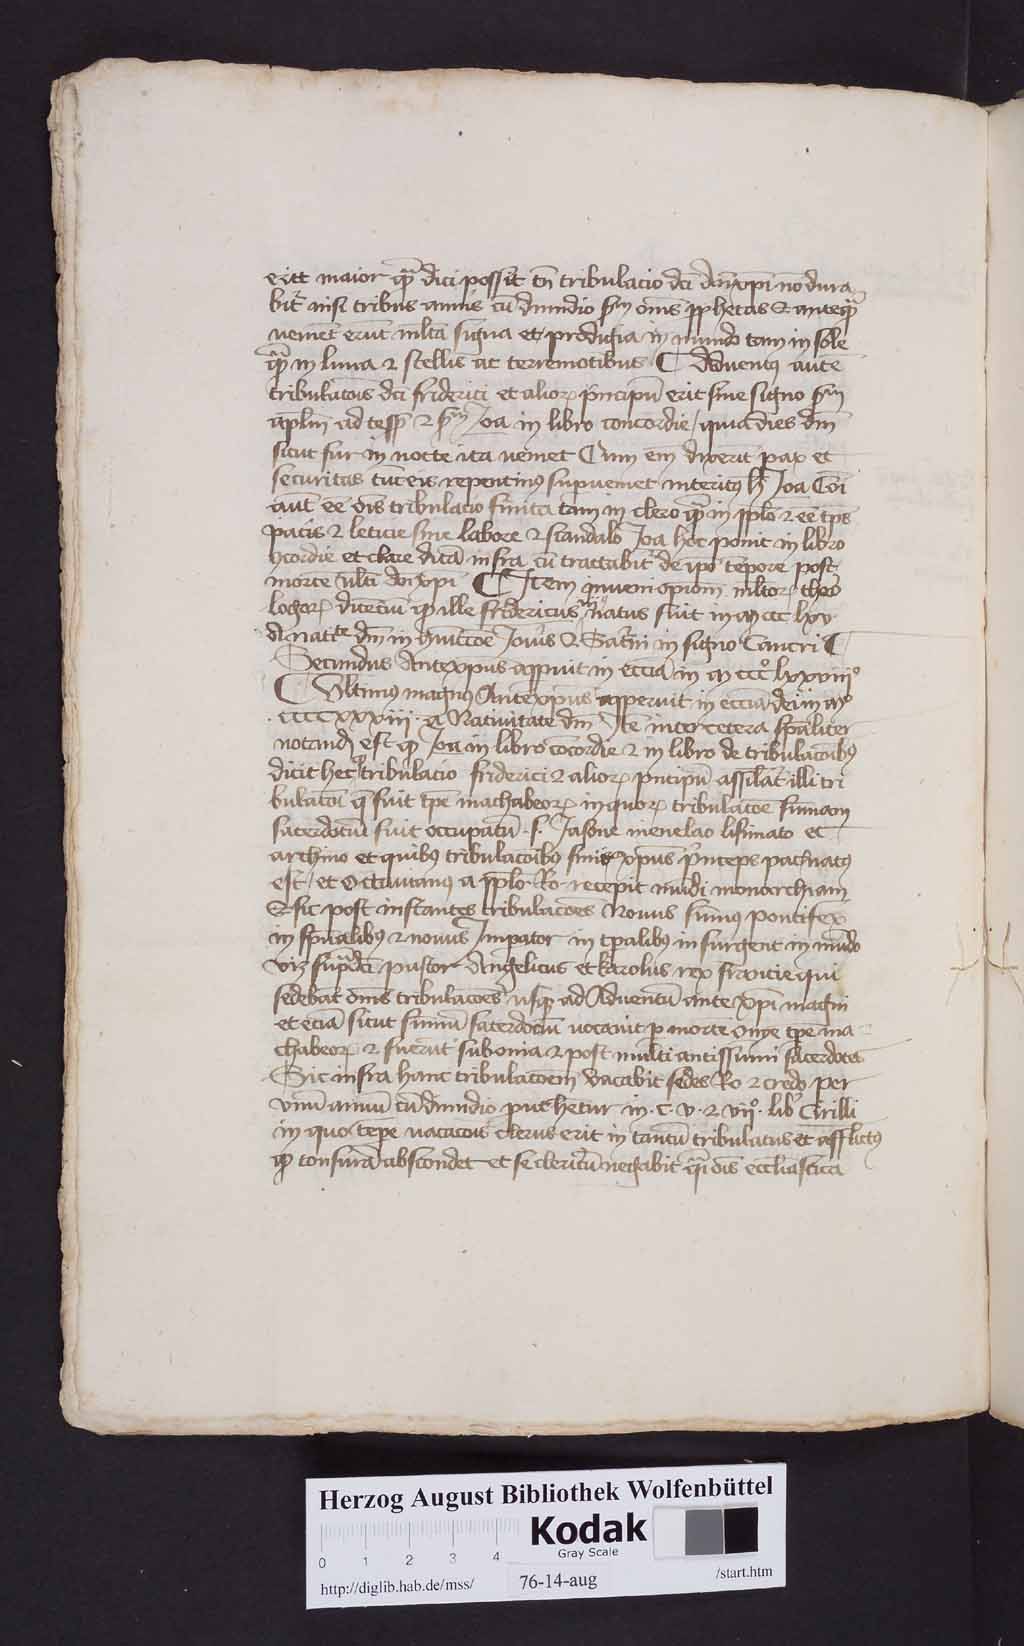 erit maior qua dici possit tn tribulacio dci Antixpi no dura
bit nisi tribus annis cu dimidio scdm oms pphetas & anteqz
veniet erut mlta signa et prodigia in mundo tam in sole
qz in luna & stellis ac terremotibus ⁋ Adventus aute
tribulacois dci friderici et alior pncipu erit sine signo scdm
aplm ad tess & scdm Joa in libro concordie / quia dies dni
sicut fur in nocte ita veniet Cum em dixerit pax et
securitas tuc eis repentinus supveniet interitus h Joa
aut ee ois tribulacio finita tam in clero qz in pplo & ee tps
pacis & leticie sine labore & scandalo Joa hoc ponit in libro
ɔcordie et clare dicta infra cu tractabit de ipo tempore post
morte ulti Antixpi ⁋ Item inveni opiniom mltor theo
logor dicenciu qp ille fridericus natus fuit in M ccc lxv
A natte dni in ɔiunccoe Jovis & Saturni in signo Cancri ⁋
Secundus Antexpus appuit in eccia in M ccco lxxviiio
⁋ Ultimus magnus Antexpus apperuit in eccia dei in Mo
ccccxxxiij a Nativitate dni Ite inter cetera spaliter
notand est qp Joa in libro concordie & in libro de tribulacoibus
dicit hec tribulacio friderici & alior pncipu assilat illi tri
bulacoi q fuit tpe machabeor in quor tribulacoe summum
sacerdociu fuit occupatu s Jasone menelao lisimato et
archimo et quibus tribulacoibus finis xpus princeps pac natus
est / et Octavianus a pplo Ro recepit mudi monarchiam
& sic post instantes tribulacoes Novus sumus pontifex
in spualibus & novus Impator in tpalibus insurgent in mudo
viz supdci pastor Angelicus et karolus rex francie qui
sedebat oms tribulacoes usqz ad Adventu ante xpi magni
et ecia sicut summu sacerdociu vocavit p morte onye tpe ma
chabeor & fuerut subonia & post multi antissimi sacerdotes
Sic infra hanc tribulacoem vacabit sedes Ro & credo per
unu annu cu dimidio put hetur in c v & viio lib Cirilli
in quo tepe vacacois clerus erit in tantu tribulatus et afflictus
qp tonsura abscondet et se clericu negabit qz ois eccliastica
Herzog August Bibliothek Wolfenbüttel
0 1 2 3 4
Kodak
Gray Scale
http://diglib.hab.de/mss/ 76-14-aug /start.htm